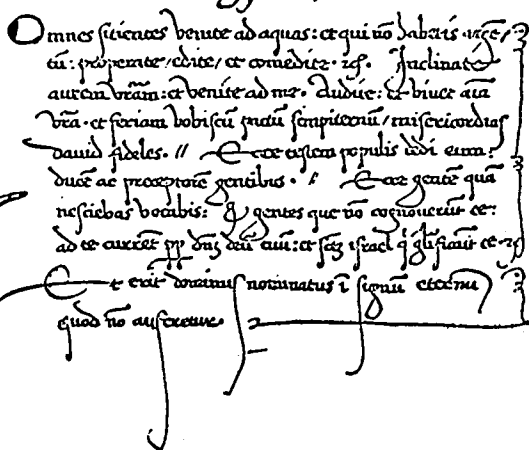 Omnes sitientes venite ad aquas: et qui nõ habetis argẽ/
tũ: properate/ edite/ et comedite. Inclinate
aurem vrãm: et venite ad me. Audite: et vivet aĩa
vrã. et feriam vobiscũ pactũ sempiternũ/ misericordias
david fideles. // Ecce testem populis dedi eum:
ducẽ ac preceptorẽ gentibus. // Ecce gentẽ quã
nesciebas vocabis: gentes que nõ cognoverũt te:
ad te currẽt dñm deũ tuũ: et israel glificavit te.
Et erit dominus nominatus ĩ signũ eternũ
quod nõ auferetur.